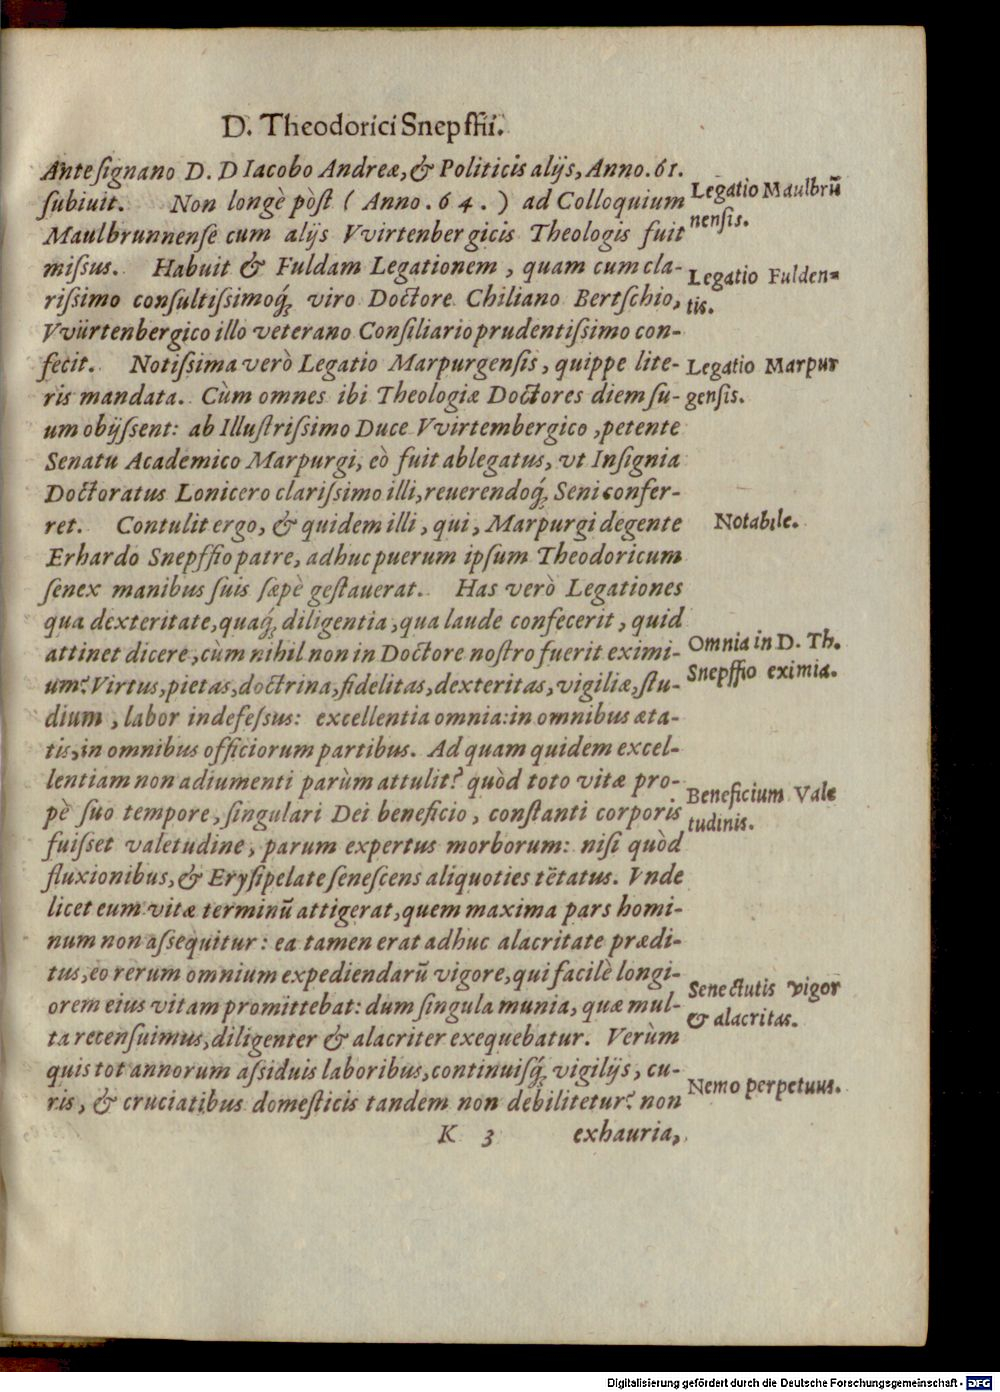 D. Theodorici Snepffii.
Anteſignano D. D Iacobo Andreæ, & Politicis alijs, Anno. 61.
ſubiuit. Non longè pòſt ( Anno . 6 4 . ) ad Colloquium
Legatio Maulbrū
nenſis.
Maulbrunnenſe cum alijs Vvirtenbergicis Theologis fuit
miſſus. Habuit & Fuldam Legationem , quam cum cla-
Legatio Fulden=
tis.
riſſimo conſultiſſimoq́; viro Doctore Chiliano Bertſchio,
Vvürtenbergico illo veterano Conſiliario prudentiſſimo con-
fecit. Notiſſima verò Legatio Marpurgenſis, quippe lite-
Legatio Marpur
genſis.
ris mandata. Cùm omnes ibi Theologiæ Doctores diem ſu-
um obijſſent: ab Illuſtriſſimo Duce Vvirtembergico ,petente
Senatu Academico Marpurgi, eò fuit ablegatus, vt Inſignia
Doctoratus Lonicero clariſſimo illi, reuerendoq́; Seni confer-
ret. Contulit ergo, & quidem illi , qui , Marpurgi degente
Notabile.
Erhardo Snepffio patre, adhuc puerum ipſum Theodoricum
ſenex manibus ſuis ſæpè geſtauerat. Has verò Legationes
qua dexteritate, quaq́; diligentia, qua laude confecerit , quid
attinet dicere, cùm nihil non in Doctore noſtro fuerit eximi-
Omnia in D. Th.
Snepffio eximia.
um? Virtus, pietas, doctrina, fidelitas, dexteritas, vigiliæ, ſtu-
dium , labor indefeſſus: excellentia omnia: in omnibus æta-
tis, in omnibus officiorum partibus. Ad quam quidem excel-
lentiam non adiumenti parùm attulit? quòd toto vitæ pro-
Beneficium Vale
tudinis.
pè ſuo tempore, ſingulari Dei beneficio , conſtanti corporis
fuiſſet valetudine, parum expertus morborum: niſi quòd
fluxionibus, & Eryſipelate ſeneſcens aliquoties tētatus. Vnde
licet eum vitæ terminū attigerat, quem maxima pars homi-
num non aſſequitur : ea tamen erat adhuc alacritate prædi-
tus, eo rerum omnium expediendarū vigore, qui facilè longi-
Senectutis vigor
& alacritas.
orem eius vitam promittebat: dum ſingula munia, quæ mul-
ta recenſuimus, diligenter & alacriter exequebatur. Verùm
quis tot annorum aſſiduis laboribus, continuiſq́; vigilijs, cu-
Nemo perpetuus.
ris, & cruciatibus domeſticis tandem non debilitetur? non
K 3 exhauria,
Digitalisierung gefördert durch die Deutsche Forschungsgemeinschaft - DFG